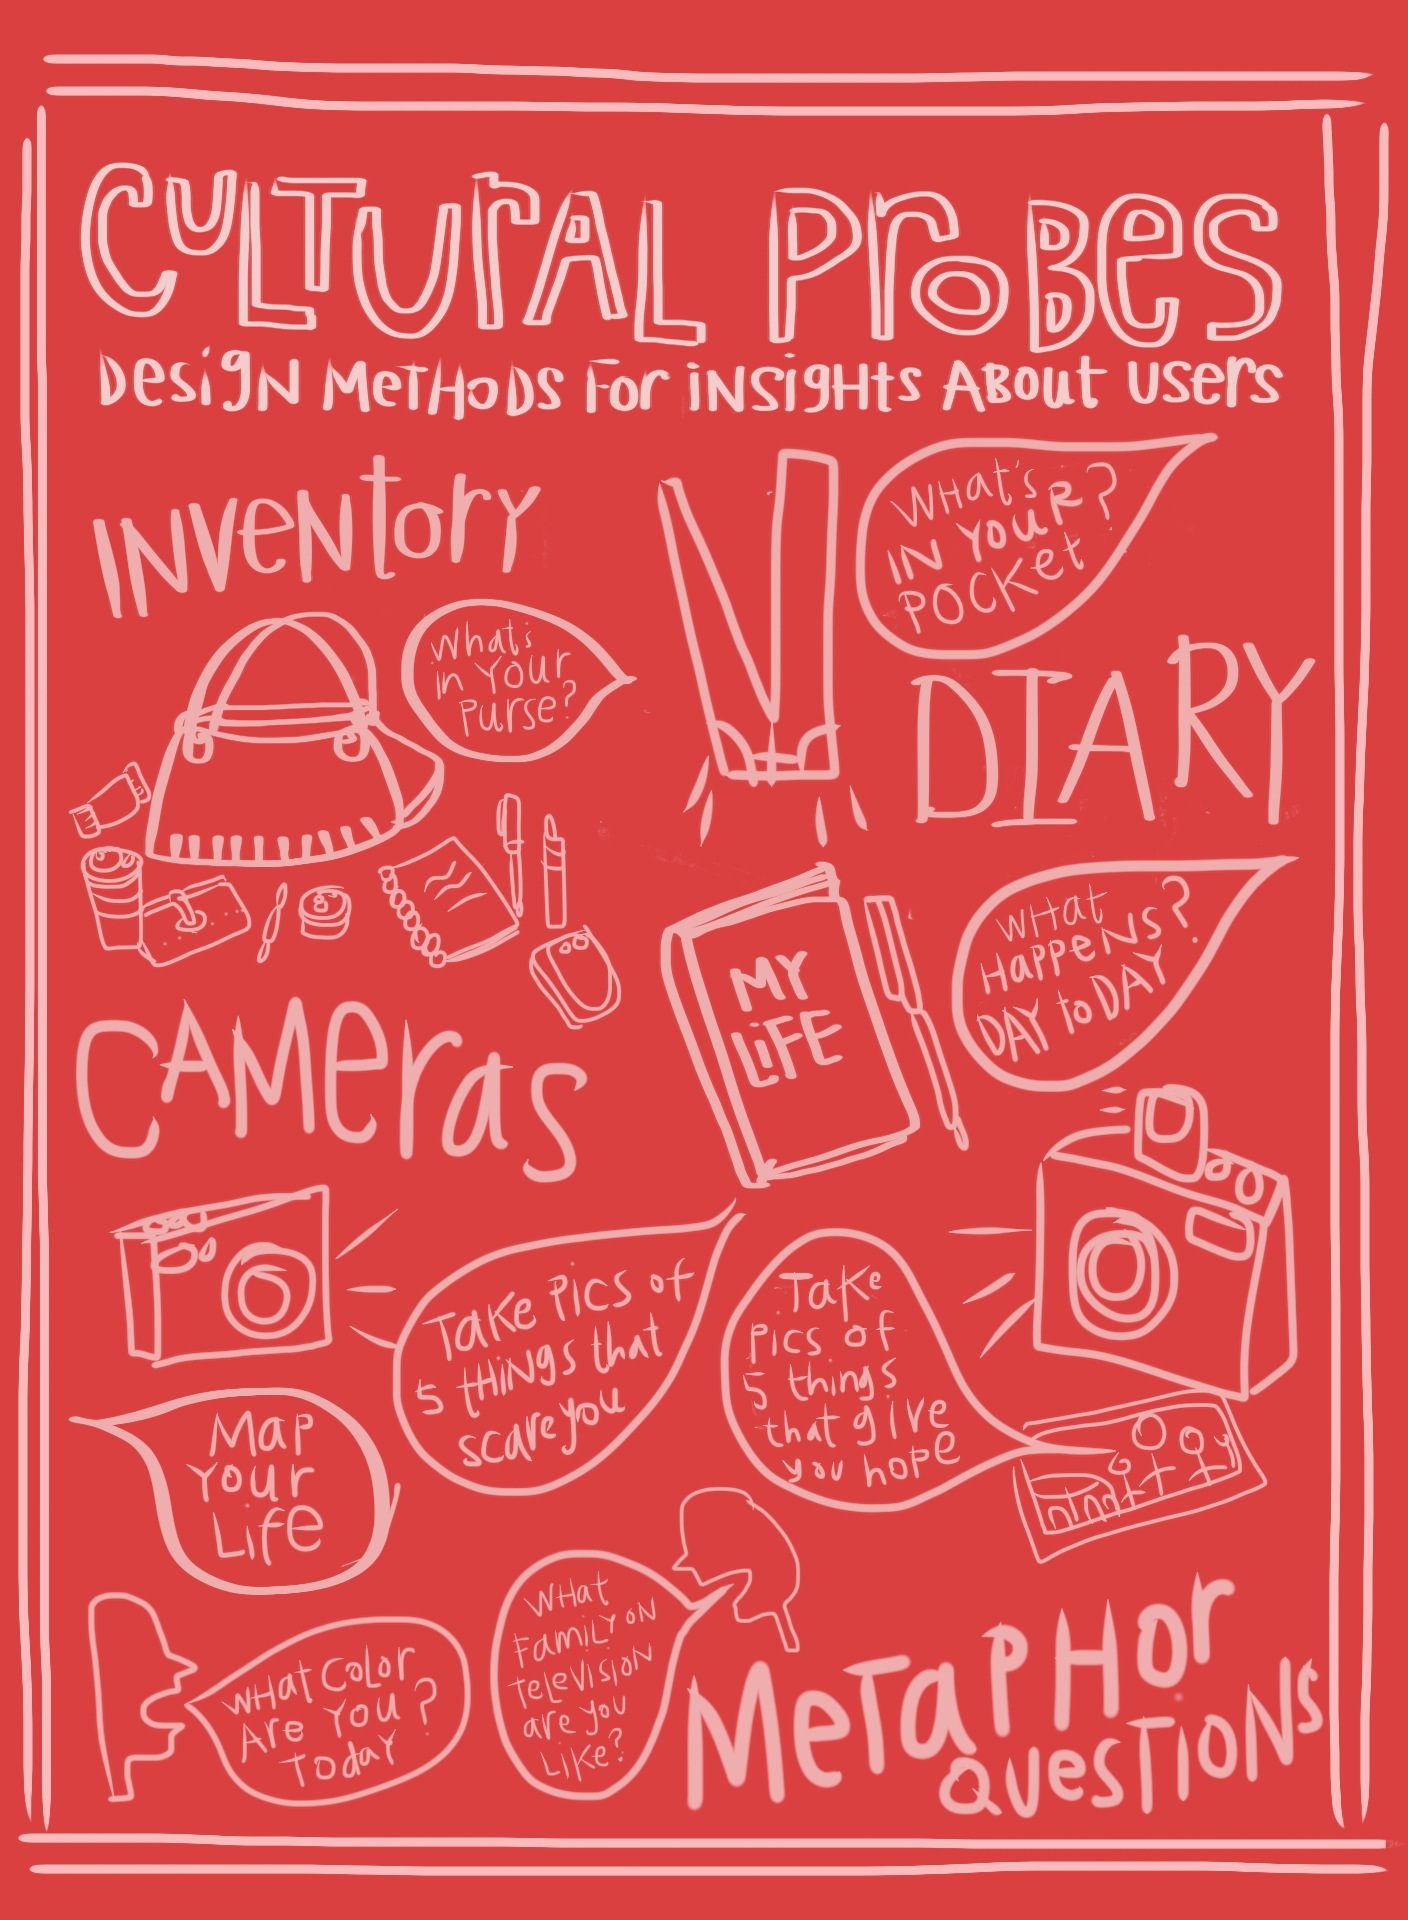 CULTURAL PROBES
DESIGN METHODS FOR INSIGHTS ABOUT USERS
INVENTORY
WHAT'S
IN YOUR?
POCKET
What's
in YOUR
PURSE?
DIARY
WHAT
HAPPENS?
DAY to DAY
MY
LIFE
CAMERAS
TAKE PICS of
5 THINGS that
scare you
TAKE
PICS OF
5 things
that give
you hope
MAP
YOUR
Life
WHAT COLOR
ARE YOU?
TODAY
WHAT
FAMILY ON
TELEVISION
are you
LIKE?
METAPHOR
QUESTIONS